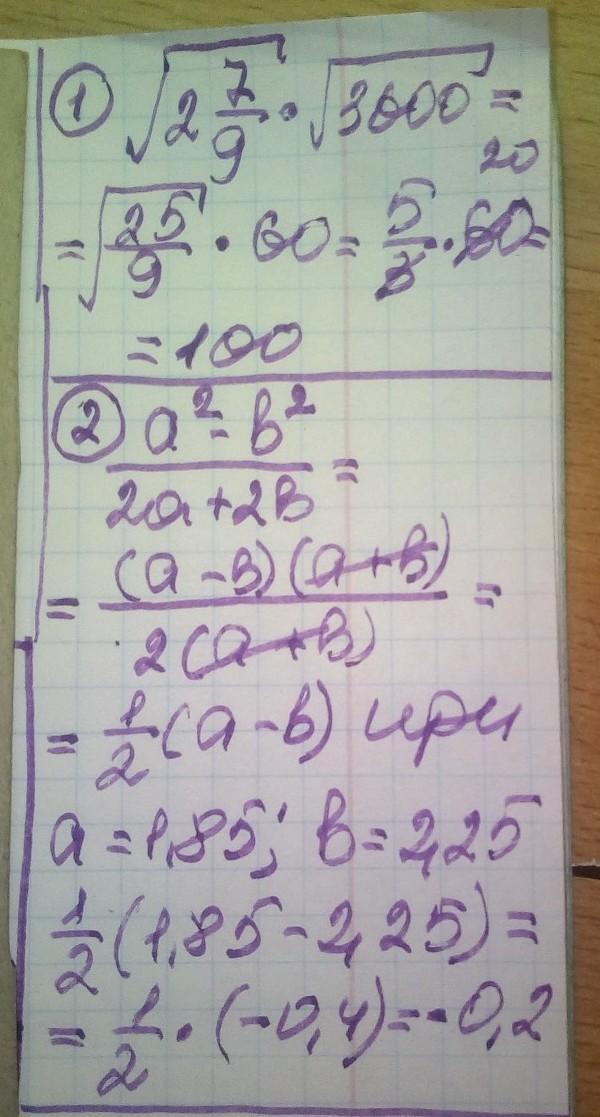 ① √(2 7/9) · √3600 =
= √(25/9) · 60 = 5/3 · 60 = 20
= 100
② (a² - b²)/(2a + 2b) =
= (a - b)(a + b)/2(a + b) =
= 1/2 (a - b) при
a = 1,85; b = 2,25
1/2 (1,85 - 2,25) =
= 1/2 · (-0,4) = -0,2